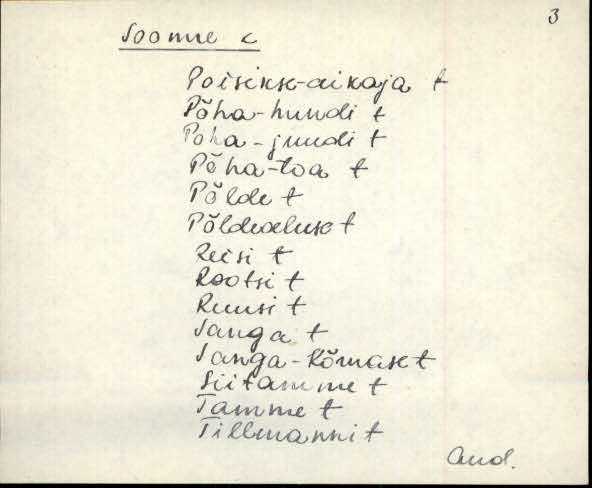 3
Soomre c
Poisikse-aikaja t
Põha-hundi t
Põha-jundi t
Põha-toa t
Põlde t
Põldealuse t
Reisi t
Rootsi t
Ruusi t
Sanga t
Sanga-Rõmase t
Siitamme t
Tamme t
Tillmanni t
And.